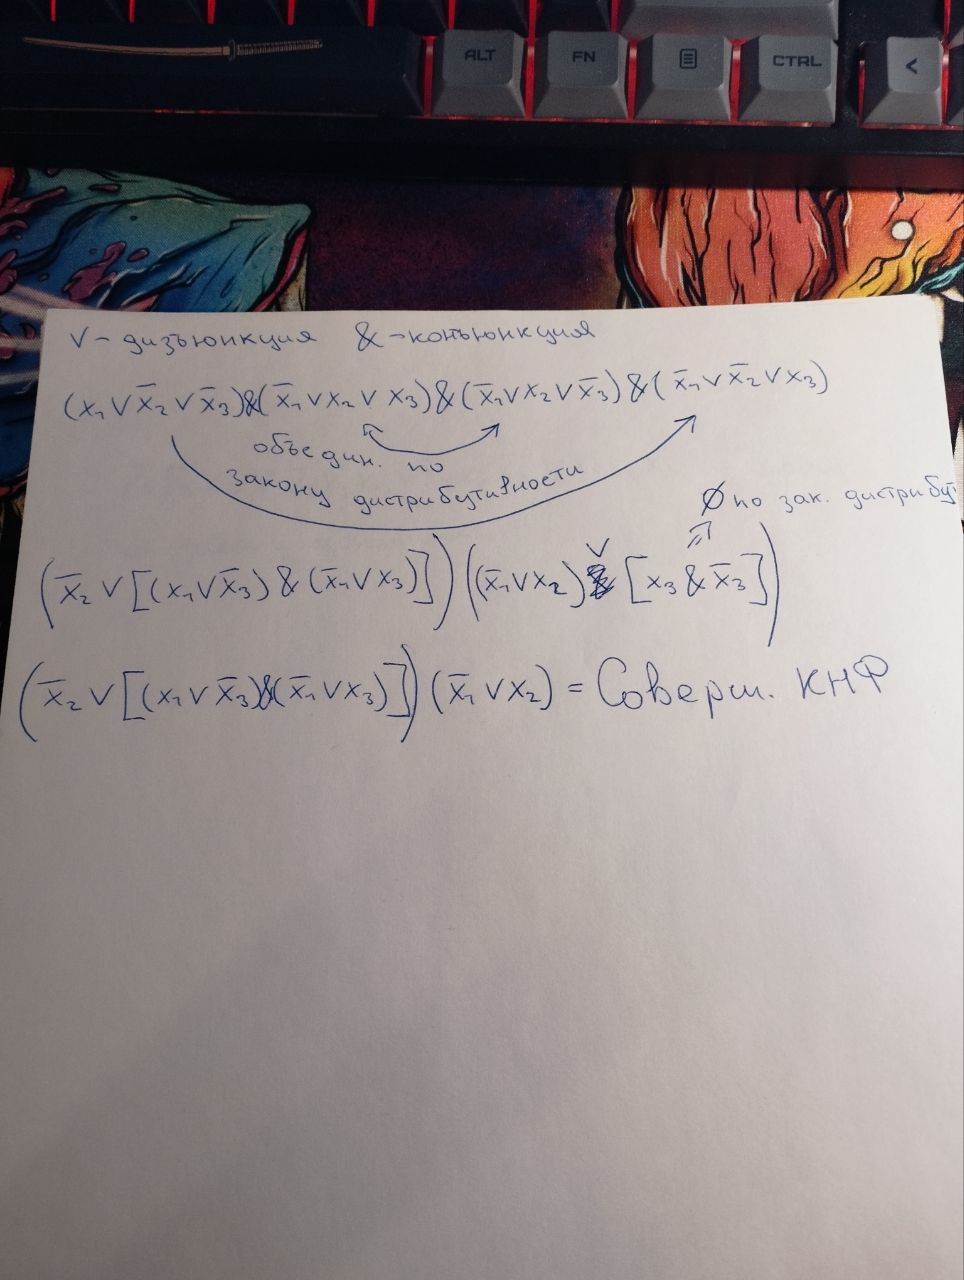 ALT FN CTRL <
V - дизъюнкция & - конъюнкция
(x₁ V x̅₂ V x̅₃) & (x̅₁ V x₂ V x₃) & (x̅₁ V x₂ V x̅₃) & (x̅₁ V x̅₂ V x₃)
объедин. по
закону дистрибутивности
∅ по зак. дистрибут
(x̅₂ V [(x₁ V x̅₃) & (x̅₁ V x₃)]) ((x̅₁ V x₂) V [x₃ & x̅₃])
(x̅₂ V [(x₁ V x̅₃) & (x̅₁ V x₃)]) (x̅₁ V x₂) = Соверш. КНФ